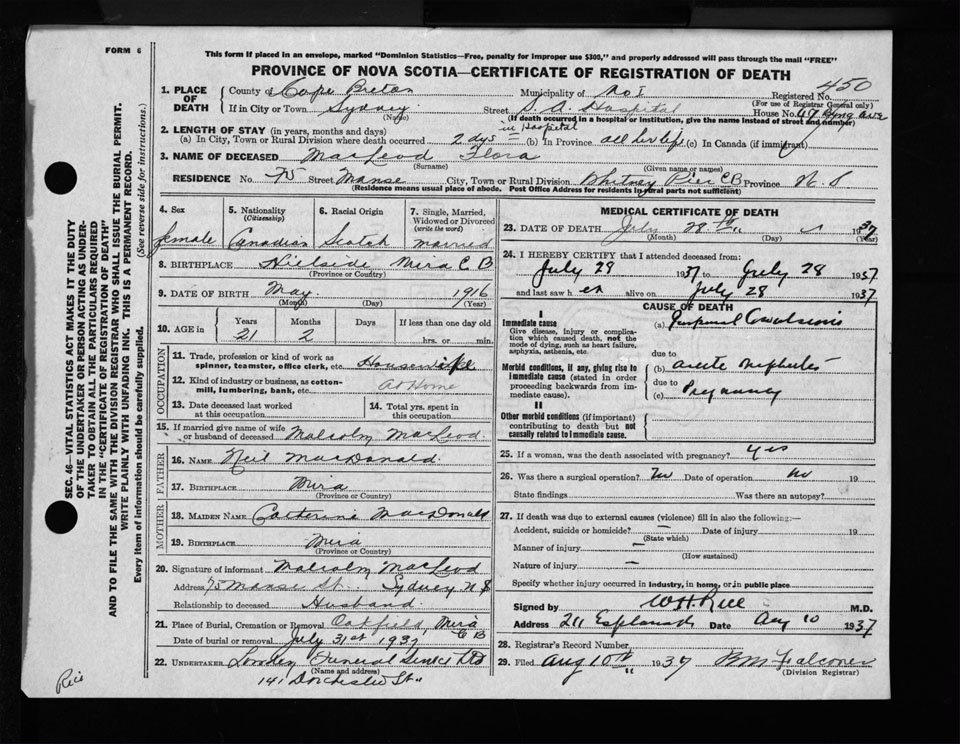 FORM 6
This form if placed in an envelope, marked "Dominion Statistics—Free, penalty for improper use $300," and properly addressed will pass through the mail "FREE"
PROVINCE OF NOVA SCOTIA—CERTIFICATE OF REGISTRATION OF DEATH
SEC. 46—VITAL STATISTICS ACT MAKES IT THE DUTY
OF THE UNDERTAKER OR PERSON ACTING AS UNDER-
TAKER TO OBTAIN ALL THE PARTICULARS REQUIRED
IN THE "CERTIFICATE OF REGISTRATION OF DEATH"
AND TO FILE THE SAME WITH THE DIVISION REGISTRAR WHO SHALL ISSUE THE BURIAL PERMIT.
WRITE PLAINLY WITH UNFADING INK. THIS IS A PERMANENT RECORD.
Every item of information should be carefully supplied. (See reverse side for instructions.)
1. PLACE OF DEATH County of Cape Breton Municipality of No 1 Registered No. 450
(For use of Registrar General only)
If in City or Town Sydney Street S. A. Hospital House No. 47
(Name) (If death occurred in a hospital or institution, give the name instead of street and number)
2. LENGTH OF STAY (in years, months and days) in hospital
(a) In City, Town or Rural Division where death occurred 2 dys (b) In Province all her life (c) In Canada (if immigrant)
3. NAME OF DECEASED MacLeod Flora
(Surname) (Given name or names)
RESIDENCE No. 75 Street Manse City, Town or Rural Division Whitney Pier C B Province N. S
(Residence means usual place of abode. Post Office Address for residents in rural parts not sufficient)
4. Sex 5. Nationality (Citizenship) 6. Racial Origin 7. Single, Married, Widowed or Divorced (write the word)
female Canadian Scotch married
8. BIRTHPLACE Hillside Mira C B
(Province or Country)
9. DATE OF BIRTH May 1916
(Month) (Day) (Year)
10. AGE in Years Months Days If less than one day old
21 2 hrs. or min.
OCCUPATION
11. Trade, profession or kind of work as spinner, teamster, office clerk, etc. Housewife
12. Kind of industry or business, as cotton-mill, lumbering, bank, etc. At Home
13. Date deceased last worked at this occupation
14. Total yrs. spent in this occupation
15. If married give name of wife or husband of deceased Malcolm MacLeod
FATHER
16. NAME Neil MacDonald
17. BIRTHPLACE Mira
(Province or Country)
MOTHER
18. MAIDEN NAME Catherine MacDonald
19. BIRTHPLACE Mira
(Province or Country)
20. Signature of informant Malcolm MacLeod
Address 75 Manse St. Sydney N S
Relationship to deceased Husband.
21. Place of Burial, Cremation or Removal Oakfield, Mira C B
Date of burial or removal July 31st 1937
22. UNDERTAKER Funeral Service Ltd
(Name and address)
141 Dorchester St "
MEDICAL CERTIFICATE OF DEATH
23. DATE OF DEATH July 28th 1937
(Month) (Day) (Year)
24. I HEREBY CERTIFY that I attended deceased from:
July 29 1937 to July 28 1937
and last saw her alive on July 28 1937
CAUSE OF DEATH
I
Immediate cause
Give disease, injury or complication which caused death, not the mode of dying, such as heart failure, asphyxia, asthenia, etc.
(a) Puerperal Convulsions
due to
Morbid conditions, if any, giving rise to immediate cause (stated in order proceeding backwards from immediate cause).
(b) acute nephritis
due to
(c) Pregnancy
II
Other morbid conditions (if important) contributing to death but not causally related to immediate cause.
25. If a woman, was the death associated with pregnancy? yes
26. Was there a surgical operation? No Date of operation no 19
State findings Was there an autopsy?
27. If death was due to external causes (violence) fill in also the following:—
Accident, suicide or homicide? — Date of injury 19
(State which)
Manner of injury —
(How sustained)
Nature of injury —
Specify whether injury occurred in industry, in home, or in public place
Signed by W H Rice M.D.
Address 211 Esplanade Date Aug 10 1937
28. Registrar's Record Number
29. Filed Aug 10th 1937 B M Falconer
(Division Registrar)
Rice